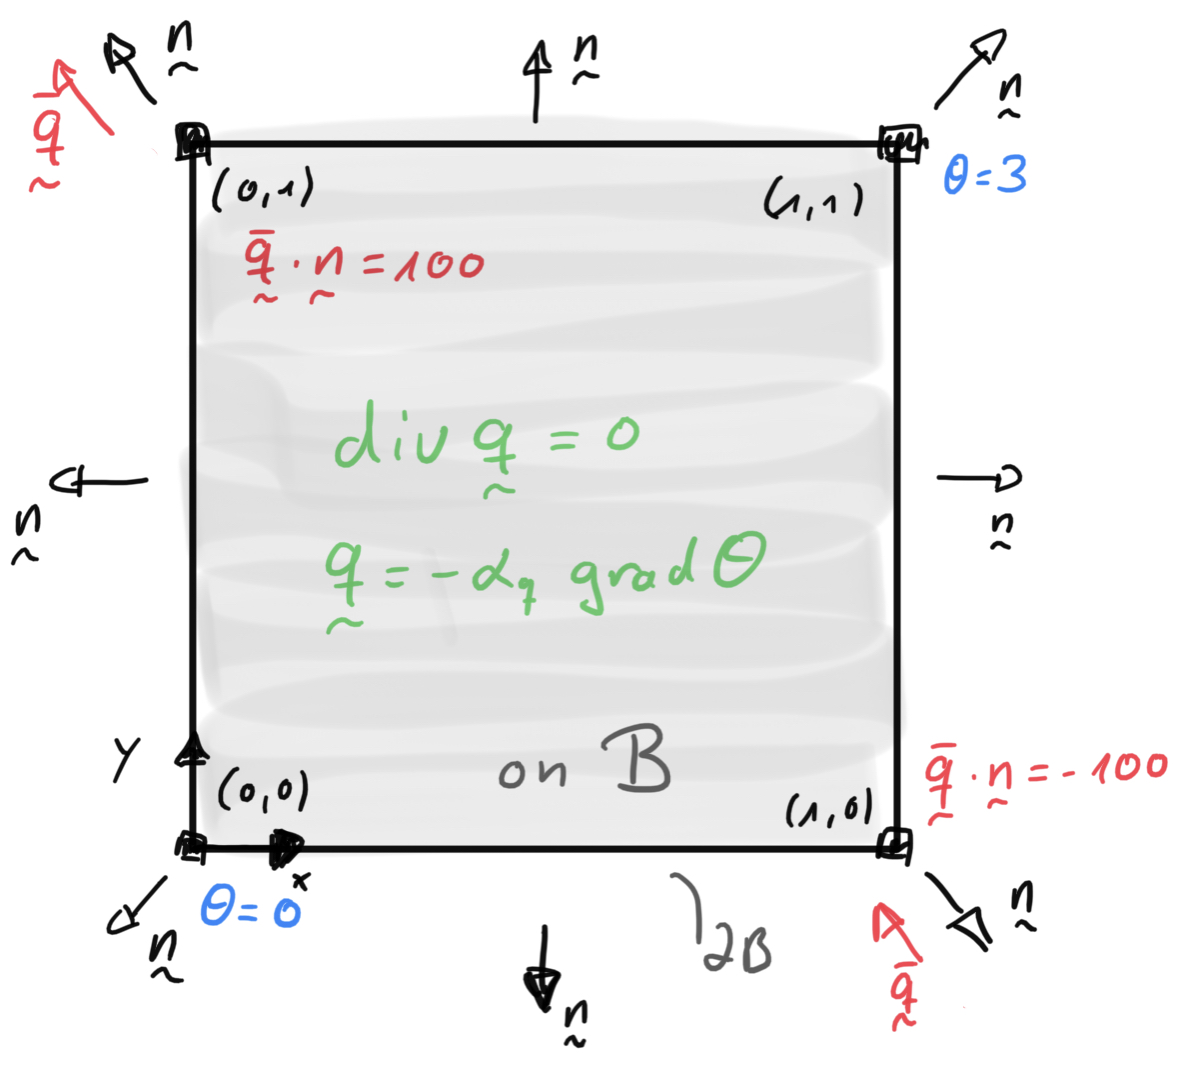 n
n
n
q̄
θ=3
(0,1)
(1,1)
q̄ · n = 100
div q = 0
n
n
q = -α_q grad θ
on B
y
(0,0)
(1,0)
q̄ · n = -100
x
θ=0
n
n
∂B
q̄
n